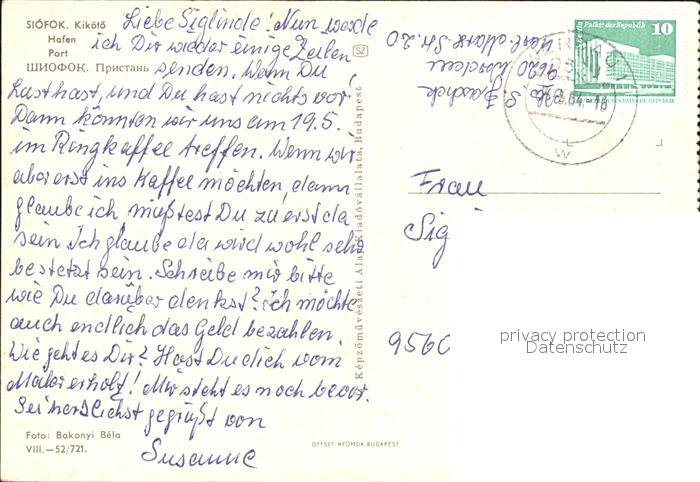 SIÓFOK. Kikötő
Hafen
Port
ШИОФОК. Пристань
Liebe Siglinde! Nun werde
ich Dir wieder einige Zeilen
senden. Wenn Du
Lust hast, und Du hast nichts vor,
Dann könnten wir uns am 19.5.
im Ringkaffee treffen. Wenn wir
aber erst ins Kaffee möchten, dann
glaube ich, müßtest Du zu erst da
sein. Ich glaube da wird wohl sehr
besetzt sein. Schreibe mir bitte
wie Du darüber denkst? ich möchte
auch endlich das Geld bezahlen.
Wie geht es Dir? Hast Du dich vom
Maler erholt! Mir steht es noch bevor.
Sei herzlichst gegrüßt von
Susanne
Foto: Bakonyi Béla
VIII.—52/721.
OFFSET NYOMDA, BUDAPEST
Képzőművészeti Alap Kiadóvállalata, Budapest
SZ
Karl-Marx Str. 20
Palast der Republik
10
DEUTSCHE DEMOKRATISCHE REPUBLIK
84.-18
Frau
Sig
9560
privacy protection
Datenschutz